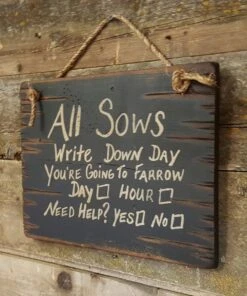 All Sows
Write Down Day
You're Going to Farrow
Day☐ Hour☐
Need Help? Yes☐ No☐